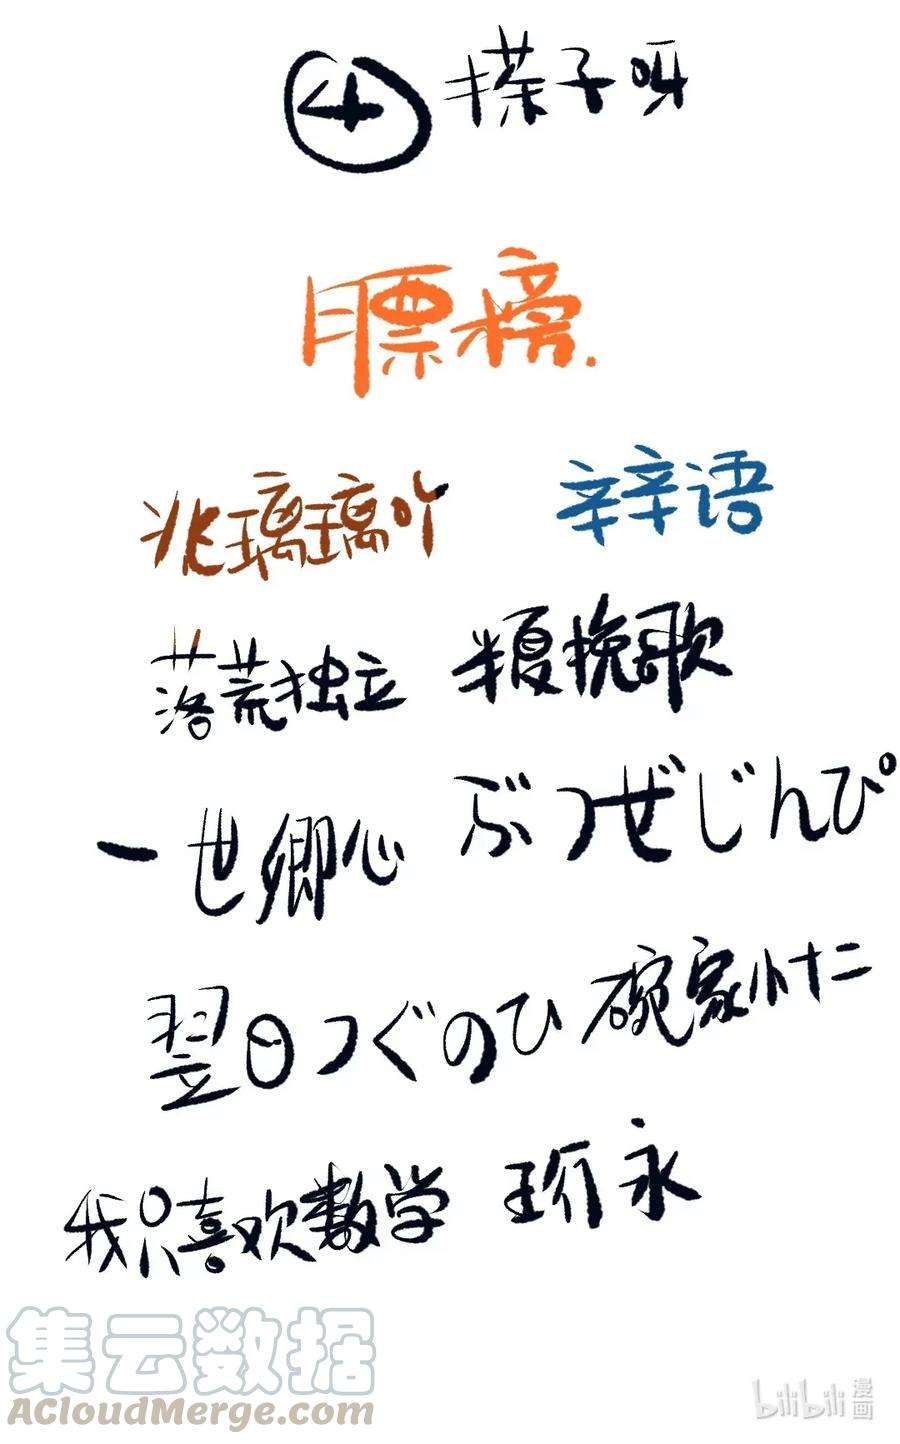 ④搽子呀
膘榜.
兆璃璃吖 辛辛语
落荒独立 半夏挽歌
一世卿心 ぶつぜじんぴ
翌日つぐのひ 碗家小十二
我只喜欢数学 玠永
集云数据
ACloudMerge.com
bilibili 漫画